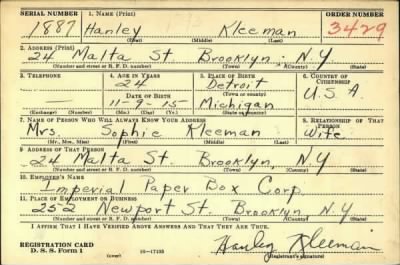 SERIAL NUMBER 1. NAME (Print) ORDER NUMBER
1887 Hanley Kleeman 3429
(First) (Middle) (Last)
2. ADDRESS (Print)
24 Malta St. Brooklyn, N.Y
(Number and street or R. F. D. number) (Town) (County) (State)
3. TELEPHONE 4. AGE IN YEARS 5. PLACE OF BIRTH 6. COUNTRY OF CITIZENSHIP
24 Detroit
DATE OF BIRTH (Town or county) U.S.A
11-9-15 Michigan
(Exchange) (Number) (Mo.) (Day) (Yr.) (State or country)
7. NAME OF PERSON WHO WILL ALWAYS KNOW YOUR ADDRESS 8. RELATIONSHIP OF THAT PERSON
Mrs. Sophie Kleeman Wife
(Mr., Mrs., Miss) (First) (Middle) (Last)
9. ADDRESS OF THAT PERSON
24 Malta St. Brooklyn, N.Y
(Number and street or R. F. D. number) (Town) (County) (State)
10. EMPLOYER'S NAME
Imperial Paper Box Corp.
11. PLACE OF EMPLOYMENT OR BUSINESS
252 Newport St. Brooklyn N.Y
(Number and street or R. F. D. number) (Town) (County) (State)
I AFFIRM THAT I HAVE VERIFIED ABOVE ANSWERS AND THAT THEY ARE TRUE.
REGISTRATION CARD
D. S. S. Form 1 (over) 16—17105 Hanley Kleeman
(Registrant's signature)